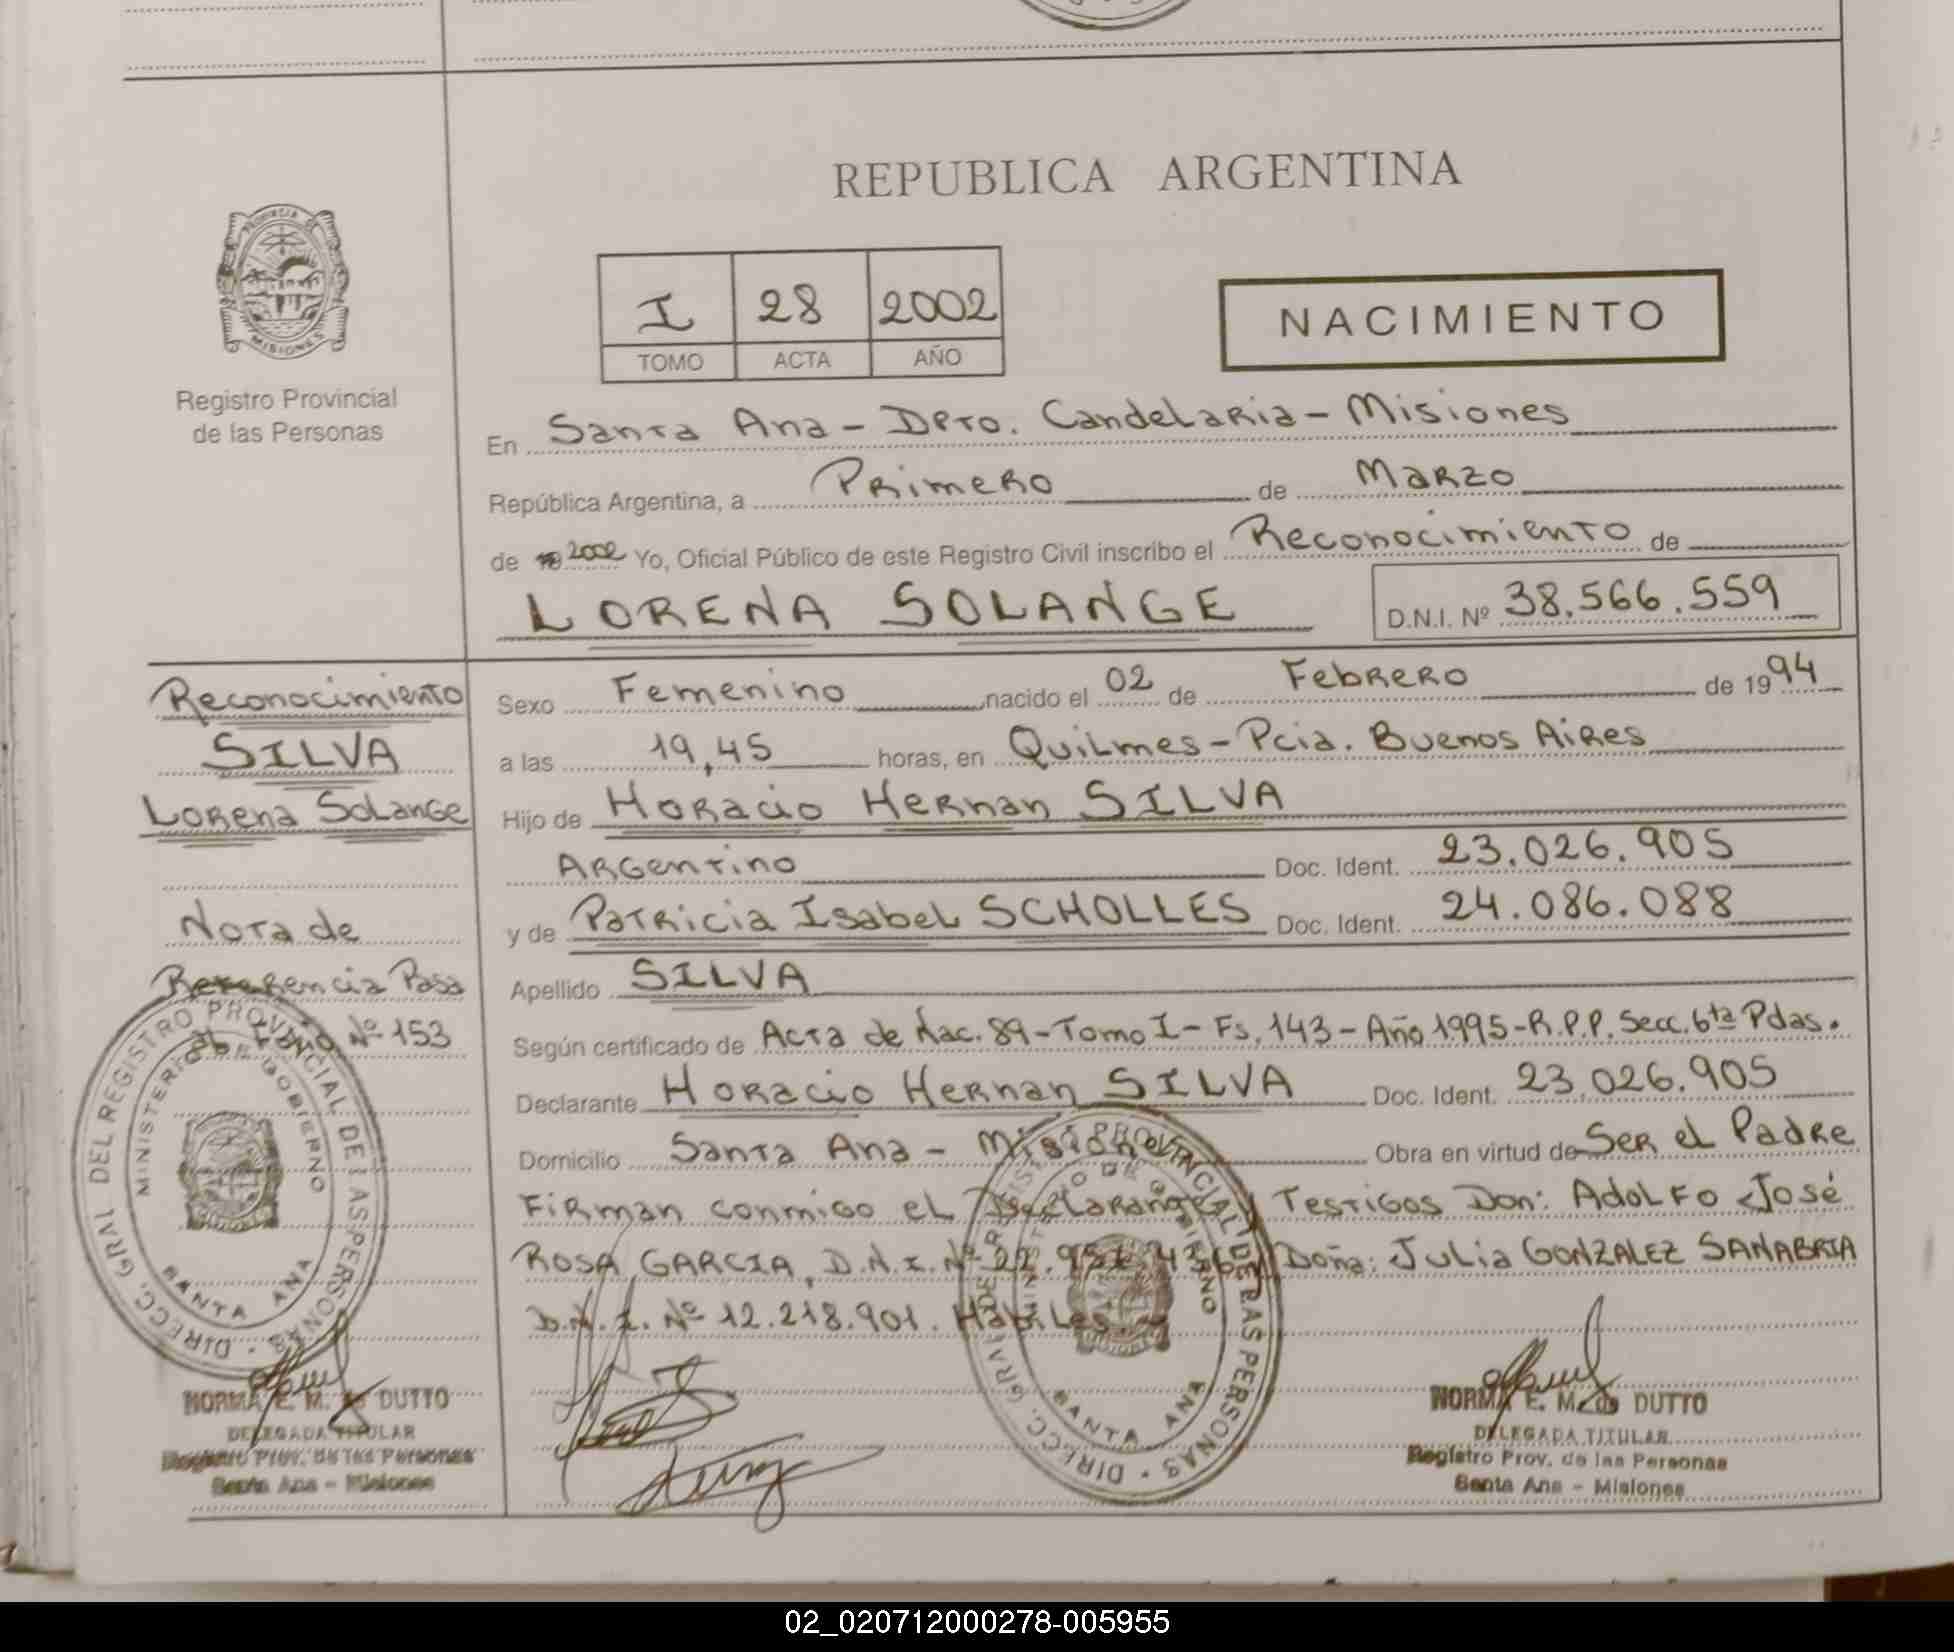 REPUBLICA ARGENTINA
PROVINCIA DE
MISIONES
Registro Provincial
de las Personas
I 28 2002
TOMO ACTA AÑO
NACIMIENTO
En Santa Ana - Dpto. Candelaria - Misiones
República Argentina, a Primero de Marzo
de 2002 Yo, Oficial Público de este Registro Civil inscribo el Reconocimiento de
LORENA SOLANGE D.N.I. Nº 38.566.559
Reconocimiento
SILVA
Lorena Solange
Nota de
Referencia Pasa
al Folio Nº 153
Sexo Femenino nacido el 02 de Febrero de 1994
a las 19,45 horas, en Quilmes - Pcia. Buenos Aires
Hijo de Horacio Hernan SILVA
Argentino Doc. Ident. 23.026.905
y de Patricia Isabel SCHOLLES Doc. Ident. 24.086.088
Apellido SILVA
Según certificado de Acta de Nac. 89 - Tomo I - Fs. 143 - Año 1995 - R.P.P. Secc. 6ta Pdas.
Declarante Horacio Hernan SILVA Doc. Ident. 23.026.905
Domicilio Santa Ana - Misiones Obra en virtud de Ser el Padre
Firman conmigo el Declarante y Testigos Don: Adolfo José
ROSA GARCIA, D.N.I. Nº Doña: Julia GONZALEZ SANABRIA
D.N.I. Nº 12.218.901. Habiles
DIRECC. GRAL DEL REGISTRO PROVINCIAL DE LAS PERSONAS
MINISTERIO DE GOBIERNO
SANTA ANA
DIRECC. GRAL DEL REGISTRO PROVINCIAL DE LAS PERSONAS
MINISTERIO DE GOBIERNO
SANTA ANA
NORMA E. M. de DUTTO
DELEGADA TITULAR
Registro Prov. de las Personas
Santa Ana - Misiones
NORMA E. M. de DUTTO
DELEGADA TITULAR
Registro Prov. de las Personas
Santa Ana - Misiones
02_020712000278-005955